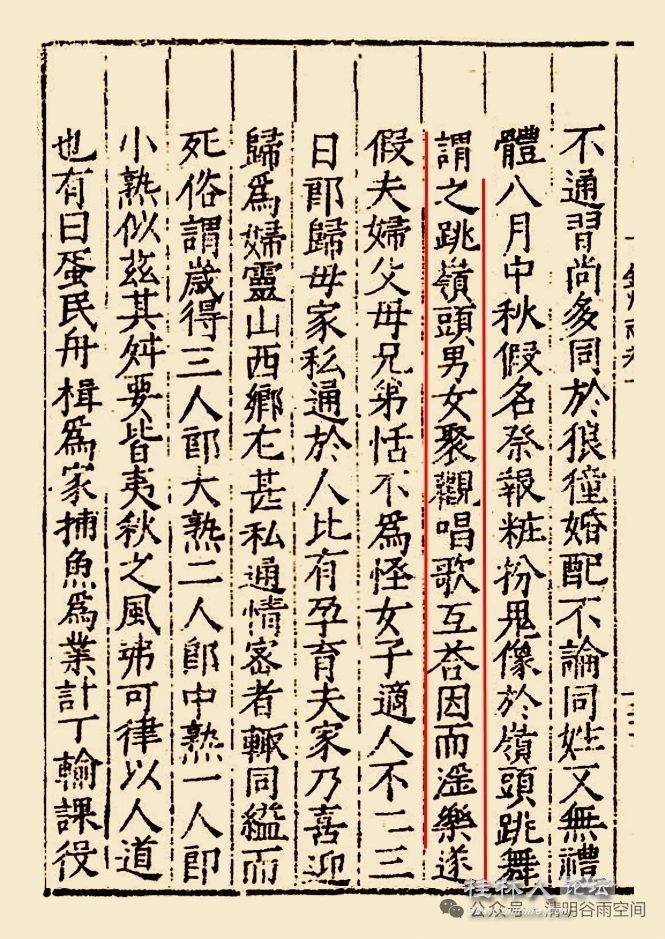 不通習尚多同於狼獞婚配不論同姓又無禮
體八月中秋假名祭報粧扮鬼像於嶺頭跳舞
謂之跳嶺頭男女聚觀唱歌互荅因而淫樂遂
假夫婦父母兄弟恬不為怪女子適人不二三
日即歸母家私通於人比有孕育夫家乃喜迎
歸為婦靈山西鄉尤甚私通情密者輙同縊而
死俗謂歲得三人即大熟二人即中熟一人即
小熟似茲其舛要皆夷狄之風弗可律以人道
也有曰蜑民舟楫為家捕魚為業計丁輸課役
桂林人论坛
公众号 清明谷雨空间